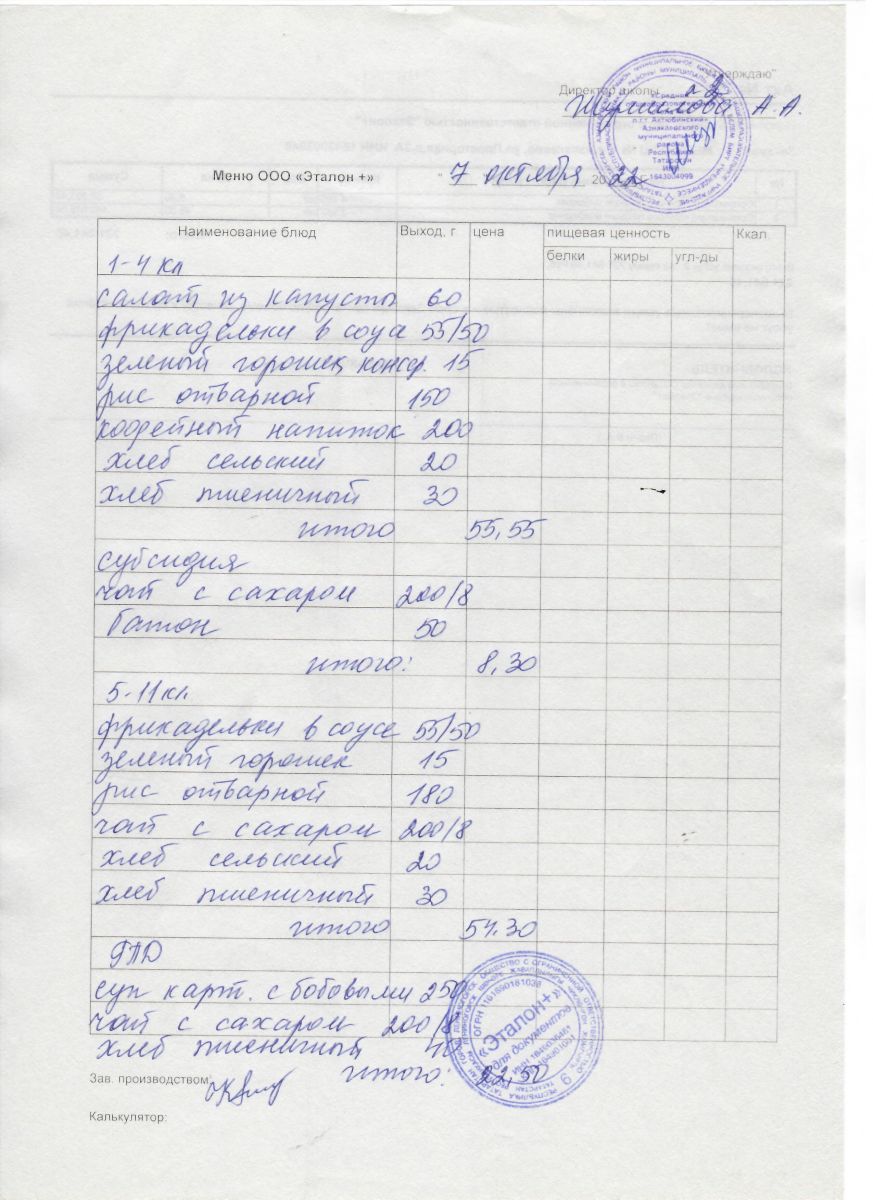 "Утверждаю"
Директор школы
А.А.
Меню ООО «Эталон +» " 7 " октября 2022 г.
Наименование блюд Выход, г цена пищевая ценность Ккал.
белки жиры угл-ды
1-4 кл
салат из капусты 60
фрикадельки в соуса 55/50
зеленый горошек консер. 15
рис отварной 150
кофейный напиток 200
хлеб сельский 20
хлеб пшеничный 30
итого 55,55
субсидия
чай с сахаром 200/8
батон 50
итого: 8,30
5-11 кл
фрикадельки в соусе 55/50
зеленый горошек 15
рис отварной 180
чай с сахаром 200/8
хлеб сельский 20
хлеб пшеничный 30
итого 54.30
ГПД
суп карт. с бобовыми 250
чай с сахаром 200/8
хлеб пшеничный
итого: 22,50
Зав. производством:
Калькулятор:
«Средняя
п.г.т Актюбинский»
Азнакаевского
муниципального
района
Республики
Татарстан
ИНН
1643004099
«Эталон+»
для документов